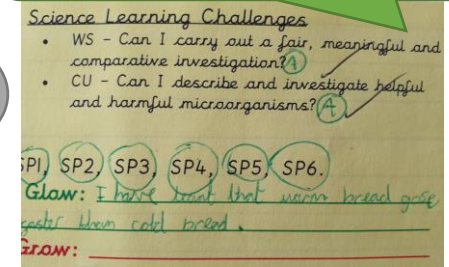 Science Learning Challenges
• WS - Can I carry out a fair, meaningful and
comparative investigation? A
• CU - Can I describe and investigate helpful
and harmful microorganisms? A
SP1, SP2, SP3, SP4, SP5, SP6.
Glow: I have that warm bread gose
than cold bread.
Grow: